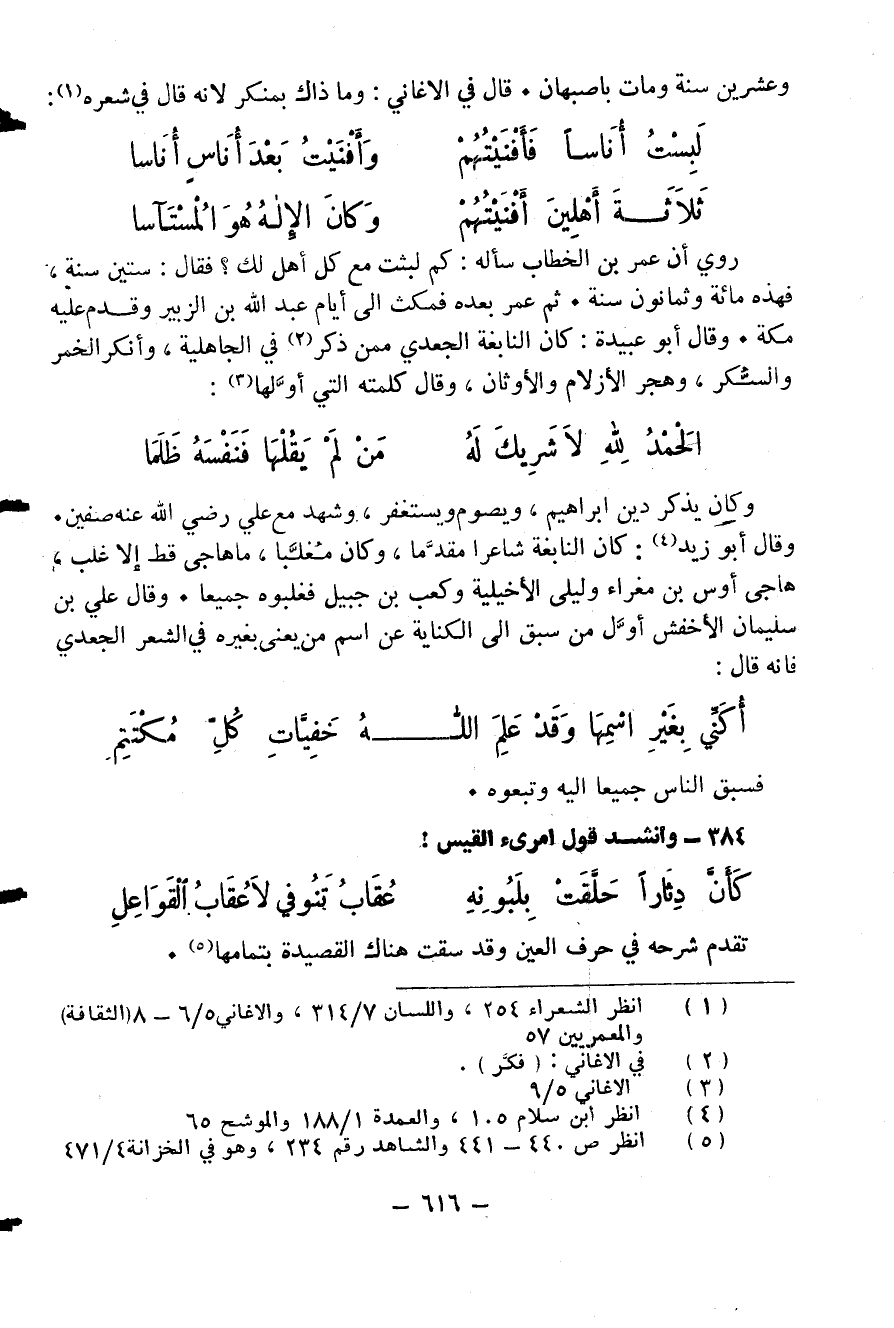 وعشرين سنة ومات باصبهان • قال في الاغاني : وما ذاك بمنكر لانه قال في شعره(١) :
لَبِسْتُ أُنَاساً فَأَفْنَيْتُهُمْ وَأَفْنَيْتُ بَعْدَ أُنَاسٍ أُنَاسا
ثَلاَثَـــةَ أَهْلِينَ أَفْنَيْتُهُمْ وَكانَ الإِلٰـهُ هُوَ الْمُسْتَآسا
روي أن عمر بن الخطاب سأله : كم لبثت مع كل أهل لك ؟ فقال : ستين سنة ،
فهذه مائة وثمانون سنة • ثم عمر بعده فمكث الى أيام عبد الله بن الزبير وقـــدم عليه
مكة • وقال أبو عبيدة : كان النابغة الجعدي ممن ذكر(٢) في الجاهلية ، وأنكر الخمر
والسُّكر ، وهجر الأزلام والأوثان ، وقال كلمته التي أوَّلها(٣) :
الْحَمْدُ لِلهِ لاَ شَرِيكَ لَهُ مَنْ لَمْ يَقُلْهَا فَنَفْسَهُ ظَلَمَا
وكان يذكر دين ابراهيم ، ويصوم ويستغفر ، وشهد مع علي رضي الله عنه صفين •
وقال أبو زيد(٤) : كان النابغة شاعرا مقدَّما ، وكان مُغلَّبا ، ماهاجى قط إلا غلب ،
هاجى أوس بن مغراء وليلى الأخيلية وكعب بن جبيل فغلبوه جميعا • وقال علي بن
سليمان الأخفش أوَّل من سبق الى الكناية عن اسم من يعنى بغيره في الشعر الجعدي
فانه قال :
أُكَنِّي بِغَيْرِ اسْمِهَا وَقَدْ عَلِمَ اللـــــــهُ خَفِيَّاتِ كُلِّ مُكْتَتِمِ
فسبق الناس جميعا اليه وتبعوه •
٣٨٤ – وانشـــد قول امرىء القيس :
كَأَنَّ دِثَاراً حَلَّقَتْ بِلَبُونِهِ عُقَابُ تَنُوفي لاَ عُقَابُ الْقَوَاعِلِ
تقدم شرحه في حرف العين وقد سقت هناك القصيدة بتمامها(٥) •
(١) انظر الشعراء ٢٥٤ ، واللسان ٣١٤/٧ ، والاغاني ٦/٥ – ٨ (الثقافة)
والمعمريين ٥٧
(٢) في الاغاني : ( فكَّر ) .
(٣) الاغاني ٩/٥
(٤) انظر ابن سلام ١٠٥ ، والعمدة ١٨٨/١ والموشح ٦٥
(٥) انظر ص ٤٤٠ – ٤٤١ والشاهد رقم ٢٣٤ ، وهو في الخزانة ٤٧١/٤
– ٦١٦ –